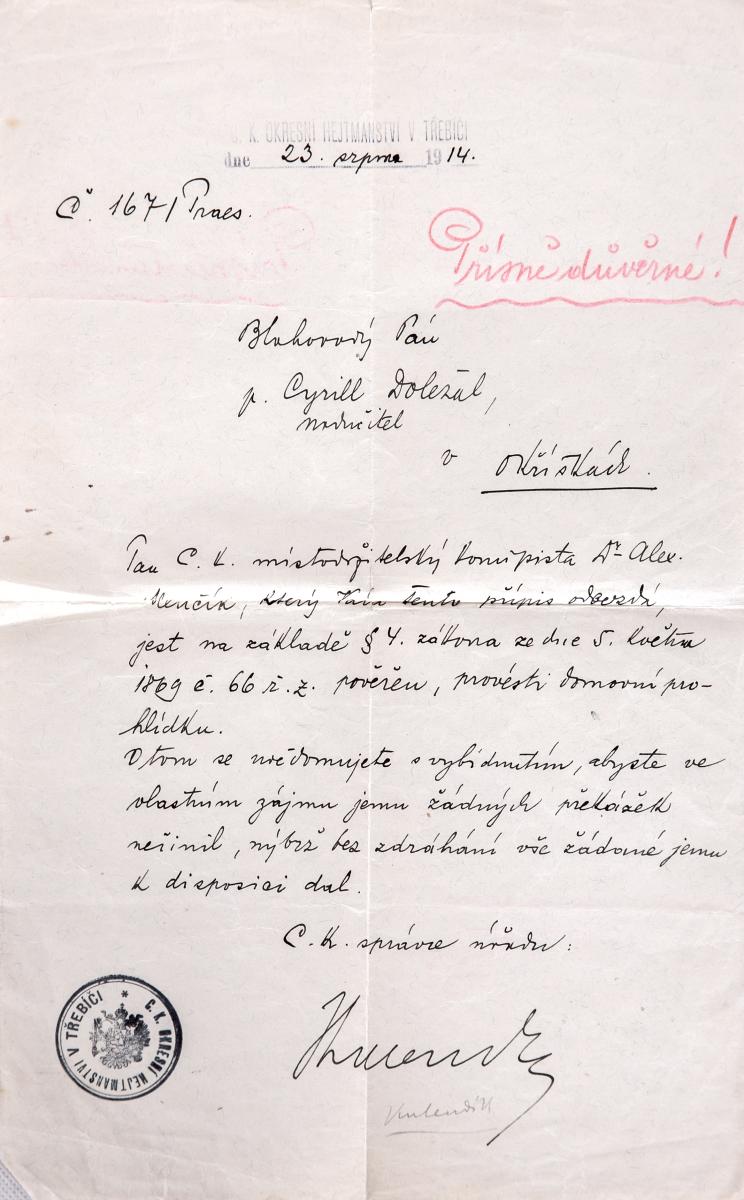 C. K. OKRESNÍ HEJTMANSTVÍ V TŘEBÍČI
dne 23. srpna 1914.
Č. 167/Praes.
Přísně důvěrné!
Blahorodý Pán
p. Cyrill Doležal,
nadučitel
v Okříškách.
Pan C. K. místodržitelský koncipista Dr. Alex.
který Vám tento přípis odevzdá,
jest na základě § 4. zákona ze dne 5. května
1869 č. 66 ř. z. pověřen, provésti domovní pro-
hlídku.
O tom se uvědomujete s vybídnutím, abyste ve
vlastním zájmu jemu žádných překážek
nečinil, nýbrž bez zdráhání vše žádané jemu
k disposici dal.
C. K. správce úřadu:
C. K. OKRESNÍ HEJTMANSTVÍ V TŘEBÍČI *